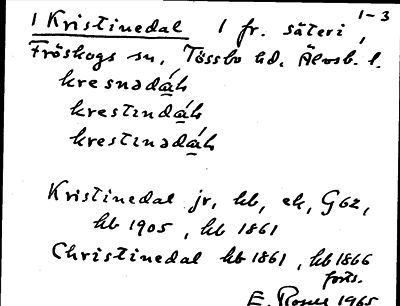 1-3
1 Kristinedal 1 fr. säteri,
Fröskogs sn, Tössbo hd. Älvsb. l.
kresnadáh
krestindáh
krestinadáh
Kristinedal jr, kb, ek, G62,
kb 1905, kb 1861
Christinedal kb 1861, kb 1866
forts.
E. 1965